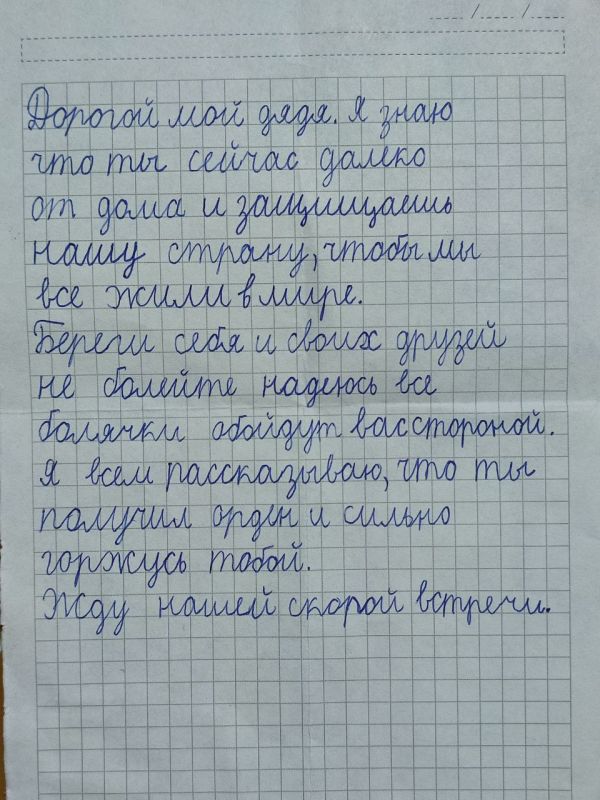 Дорогой мой дядя. Я знаю
что ты сейчас далеко
от дома и защищаешь
нашу страну, чтобы мы
все жили в мире.
Береги себя и своих друзей
не болейте надеюсь все
болячки обойдут вас стороной.
Я всем рассказываю, что ты
получил орден и сильно
горжусь тобой.
Жду нашей скорой встречи.